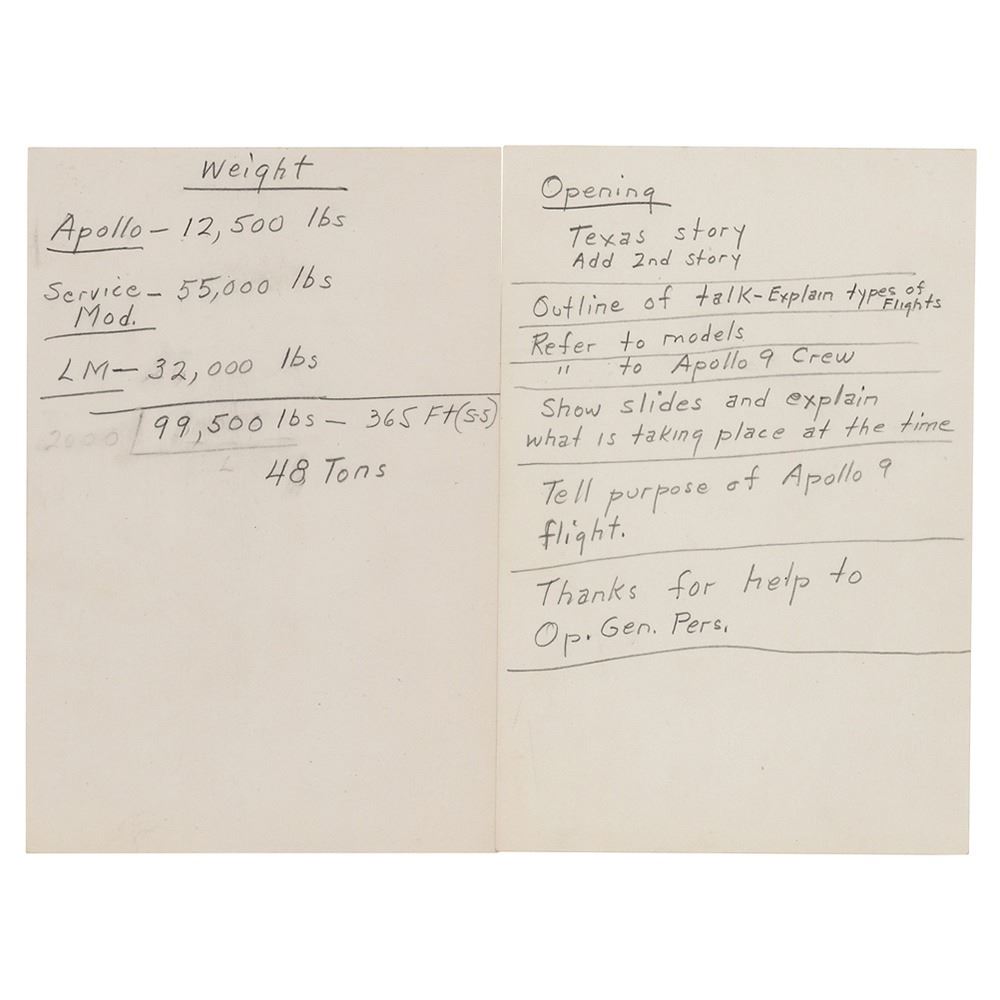 Weight
Apollo – 12,500 lbs
Service – 55,000 lbs
Mod.
LM – 32,000 lbs
2000 99,500 lbs – 365 Ft(S-5)
48 Tons
Opening
Texas story
Add 2nd story
Outline of talk – Explain types of
Flights
Refer to models
" to Apollo 9 Crew
Show slides and explain
what is taking place at the time
Tell purpose of Apollo 9
flight.
Thanks for help to
Op. Gen. Pers.